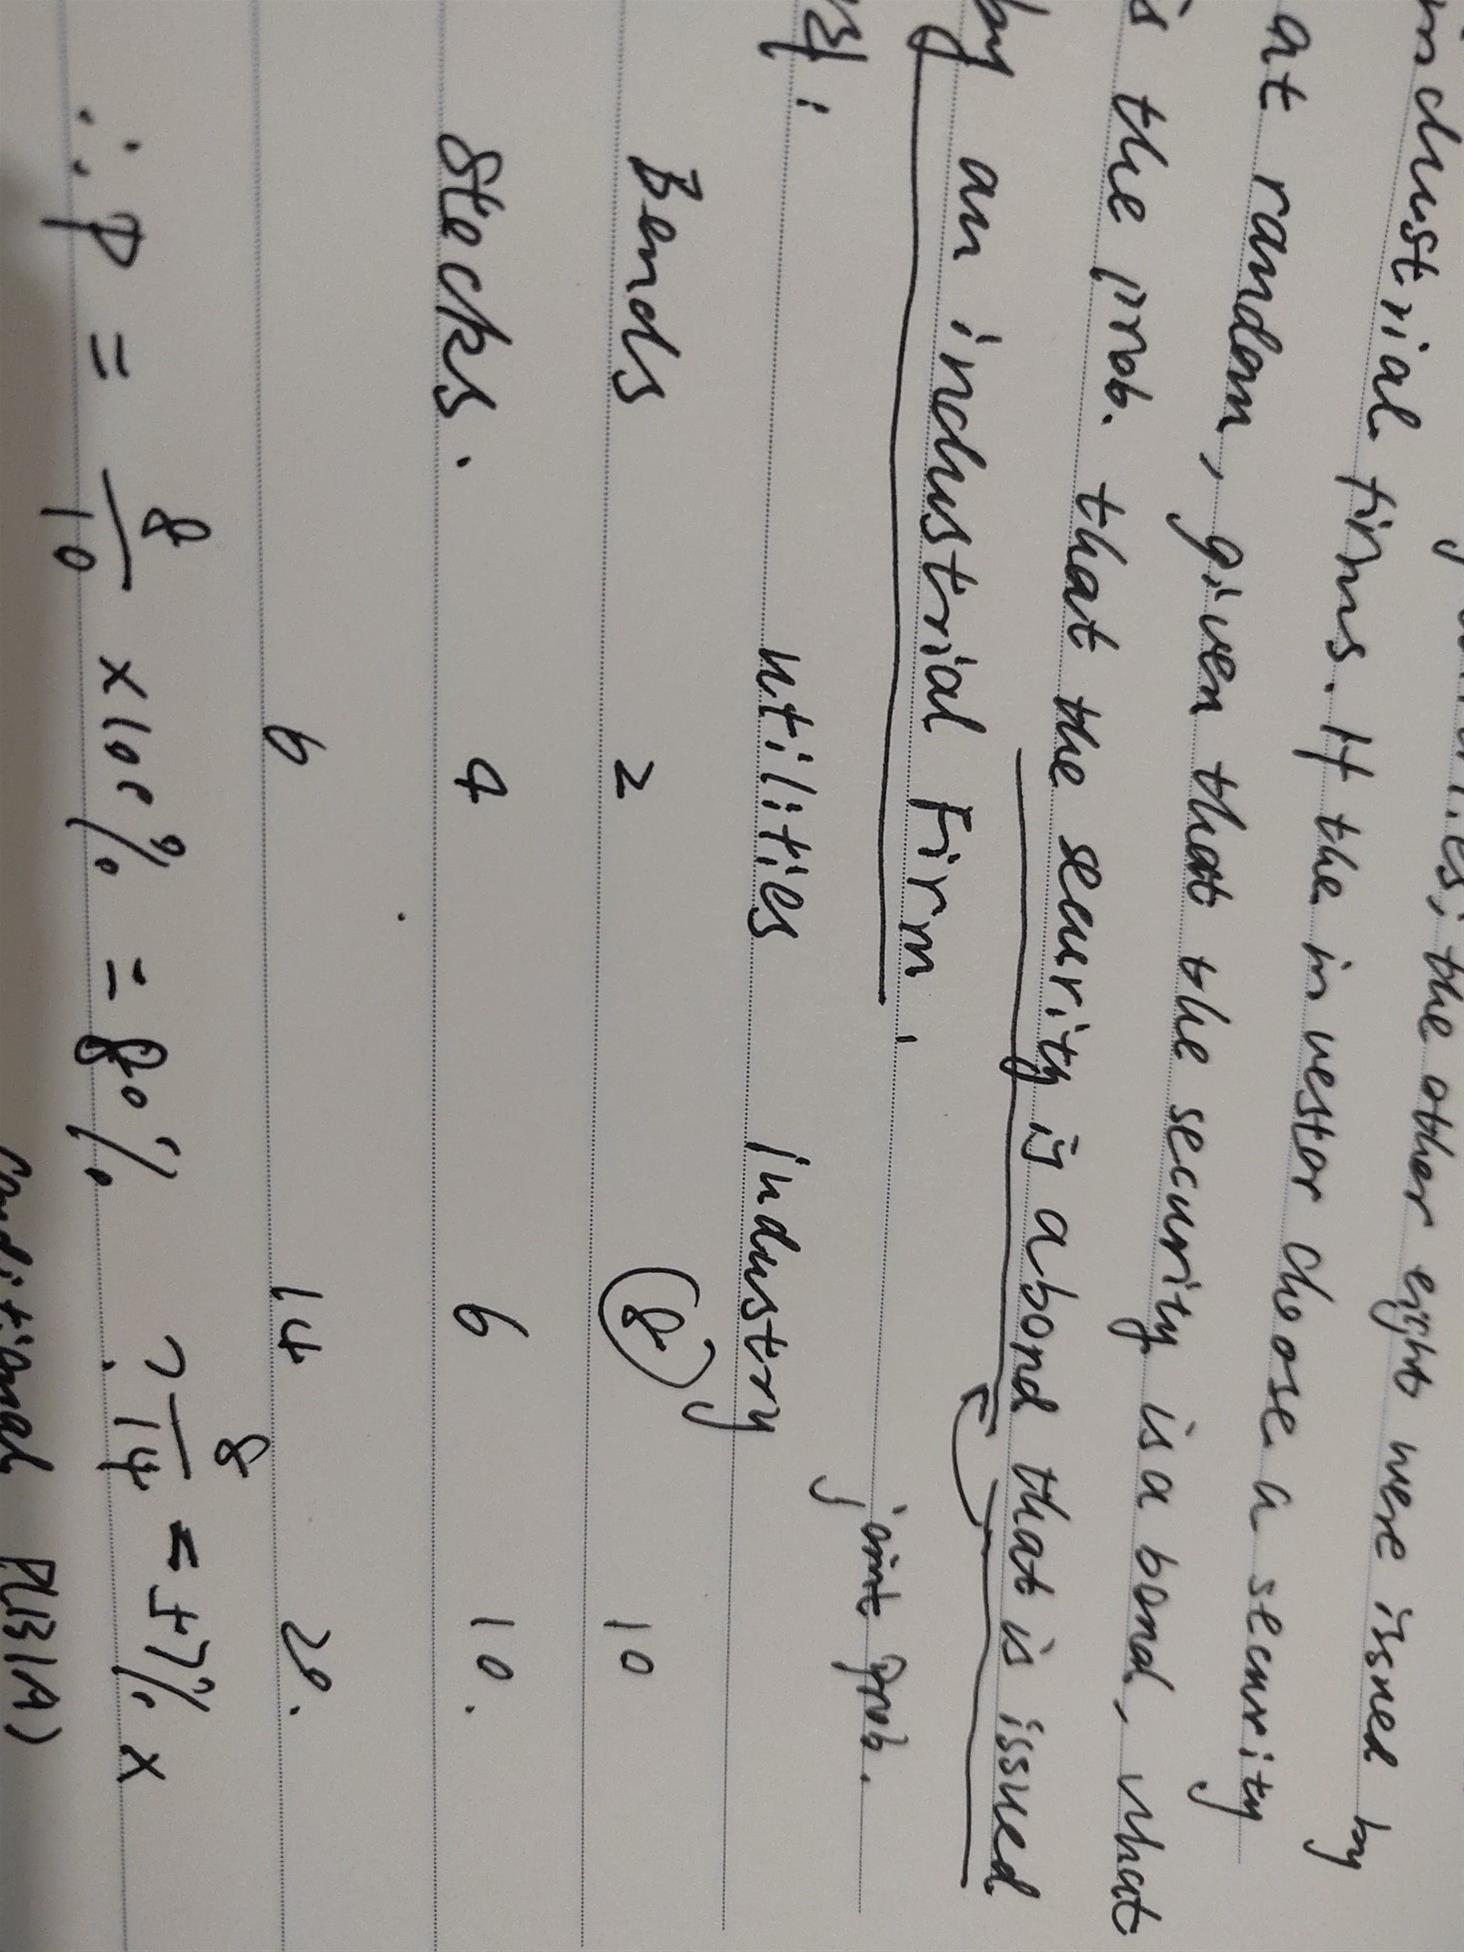 the other eight were issued by
industrial firms. If the investor choose a security
at random, given that the security is a bond, what
is the prob. that the security is a bond that is issued
by an industrial Firm.
joint prob.
utilities industry
Bonds 2 8 10
Stocks. 4 6 10.
6 14 20.
∴ P = 8/10 ×100% = 80% ? 8/14 = 57% ×
Conditional P(B|A)